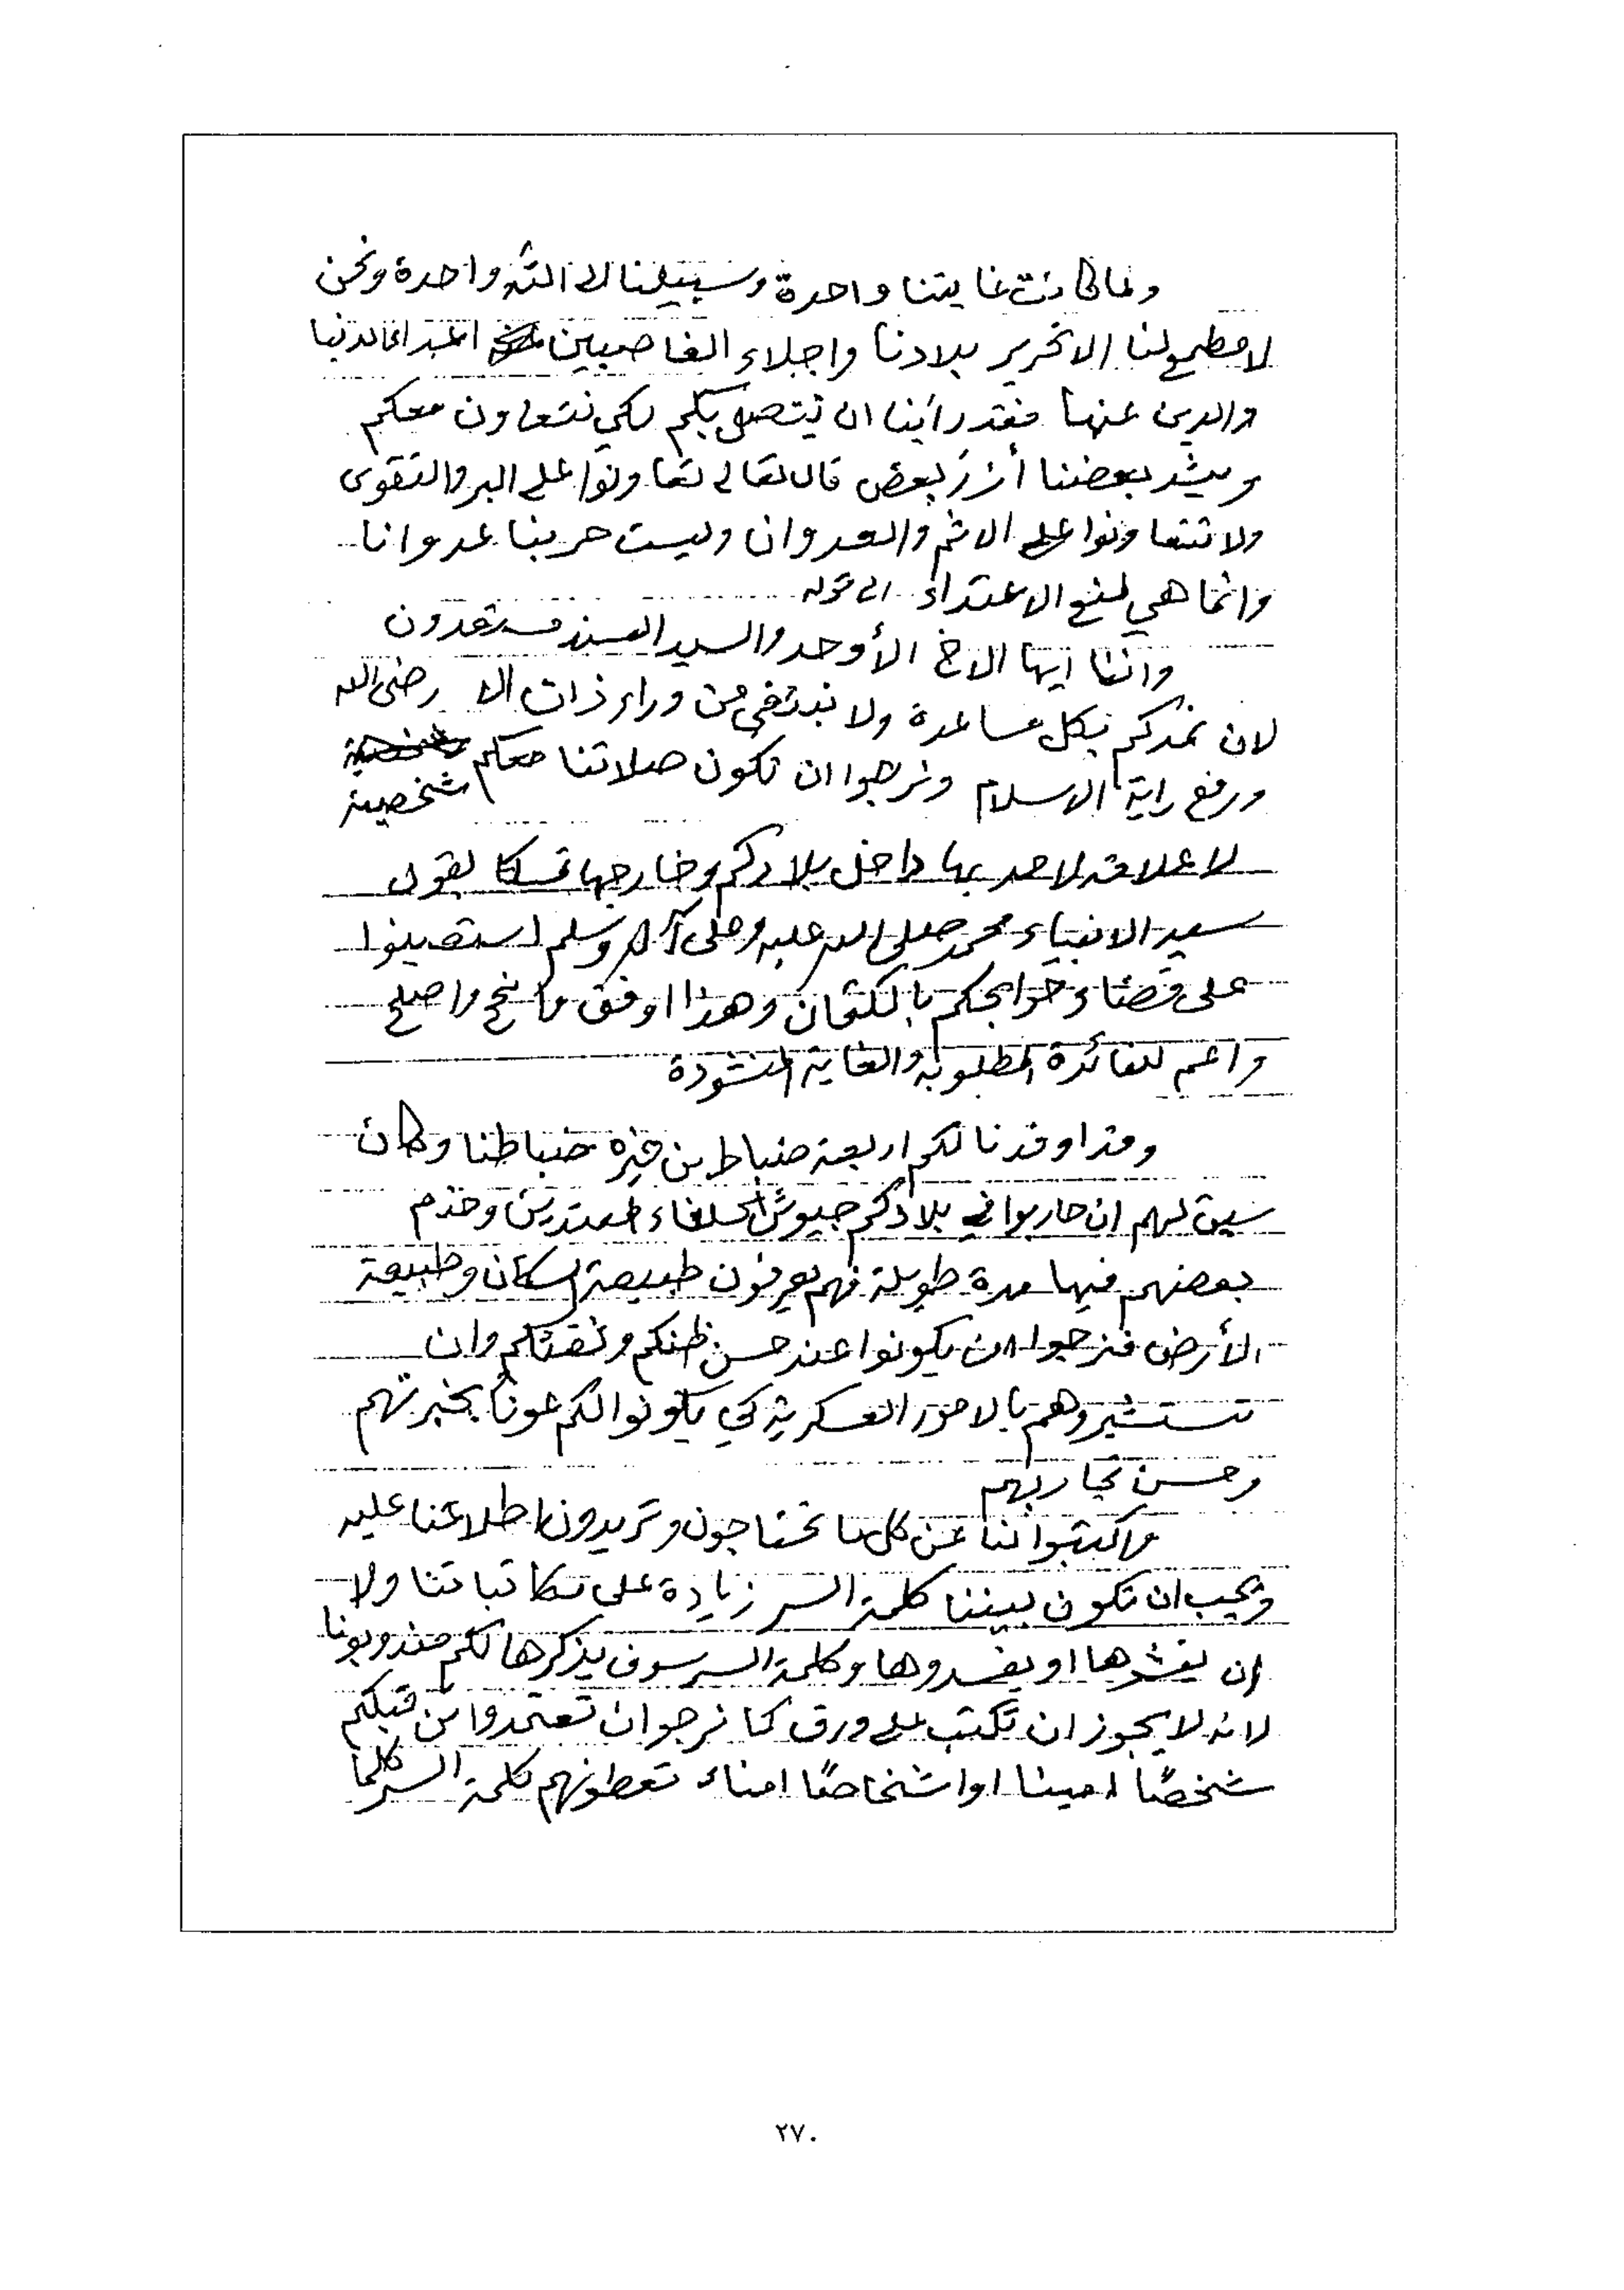 ولما كانت غايتنا واحدة وسبيلنا الى الله واحدة ونحن
لا مطمع لنا الا تحرير بلادنا واجلاء الغاصبين اعداء الدنيا
والدين عنها فقد رأينا ان نتصل بكم لكي نتعاون معكم
ويشد بعضنا أزر بعض قال تعالى تعاونوا على البر والتقوى
ولا تتعاونوا على الاثم والعدوان وليست حربنا عدوانا
وانما هي لمنع الاعتداء الى قوله
واننا ايها الاخ الأوحد والسيد السند مستعدون
لان نمدكم بكل مساعدة ولا نبتغي من وراء ذات الا رضى الله
ورفع راية الاسلام ونرجوا ان تكون صلاتنا معكم
شخصية
لا علاقة لاحد بها داخل بلادكم وخارجها تمسكا بقول
سيد الانبياء محمد صلى الله عليه وعلى آله وسلم استعينوا
على قضاء حوايجكم بالكتمان وهذا اوفق وانجح واصلح
واعم للفائدة المطلوبة والغاية المنشودة
وقد اوفدنا لكم اربعة ضباط من خيرة ضباطنا وكان
سبق لهم ان حاربوا في بلادكم جيوش الحلفاء المعتدين وخدم
بعضهم فيها مدة طويلة فهم يعرفون طبيعة السكان وطبيعة
الأرض فنرجوا ان يكونوا عند حسن ظنكم وثقتكم وان
تستشيروهم بالامور العسكرية كي يكونوا لكم عونا بخبرتهم
وحسن تجاربهم
واكتبوا لنا عن كل ما تحتاجون وتريدون اطلاعنا عليه
ويجب ان تكون بيننا كلمة السر زيادة على مكاتباتنا ولا
ان يفشوها او يفسدوها وكلمة السر سوف يذكرها لكم مندوبونا
لانه لا يجوز ان تكتب على ورق كما نرجوا ان تعتمدوا من قبلكم
شخصًا امينا او اشخاصًا امناء تعطونهم كلمة السر كلما
٢٧٠